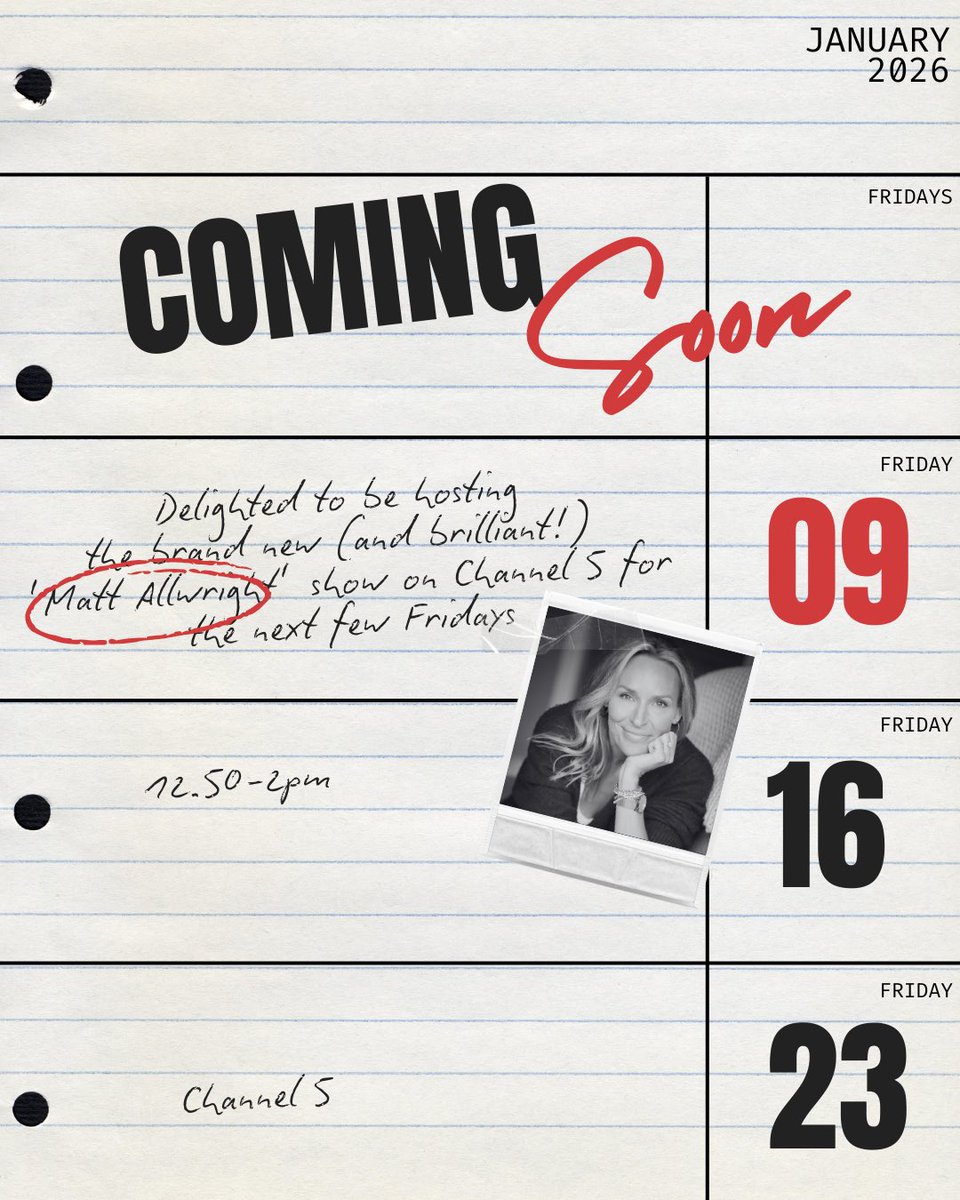 JANUARY
2026
FRIDAYS
COMING
Soon
FRIDAY
09
Delighted to be hosting
the brand new (and brilliant!)
'Matt Allwright' show on Channel 5 for
the next few Fridays
FRIDAY
16
12.50-2pm
FRIDAY
23
Channel 5